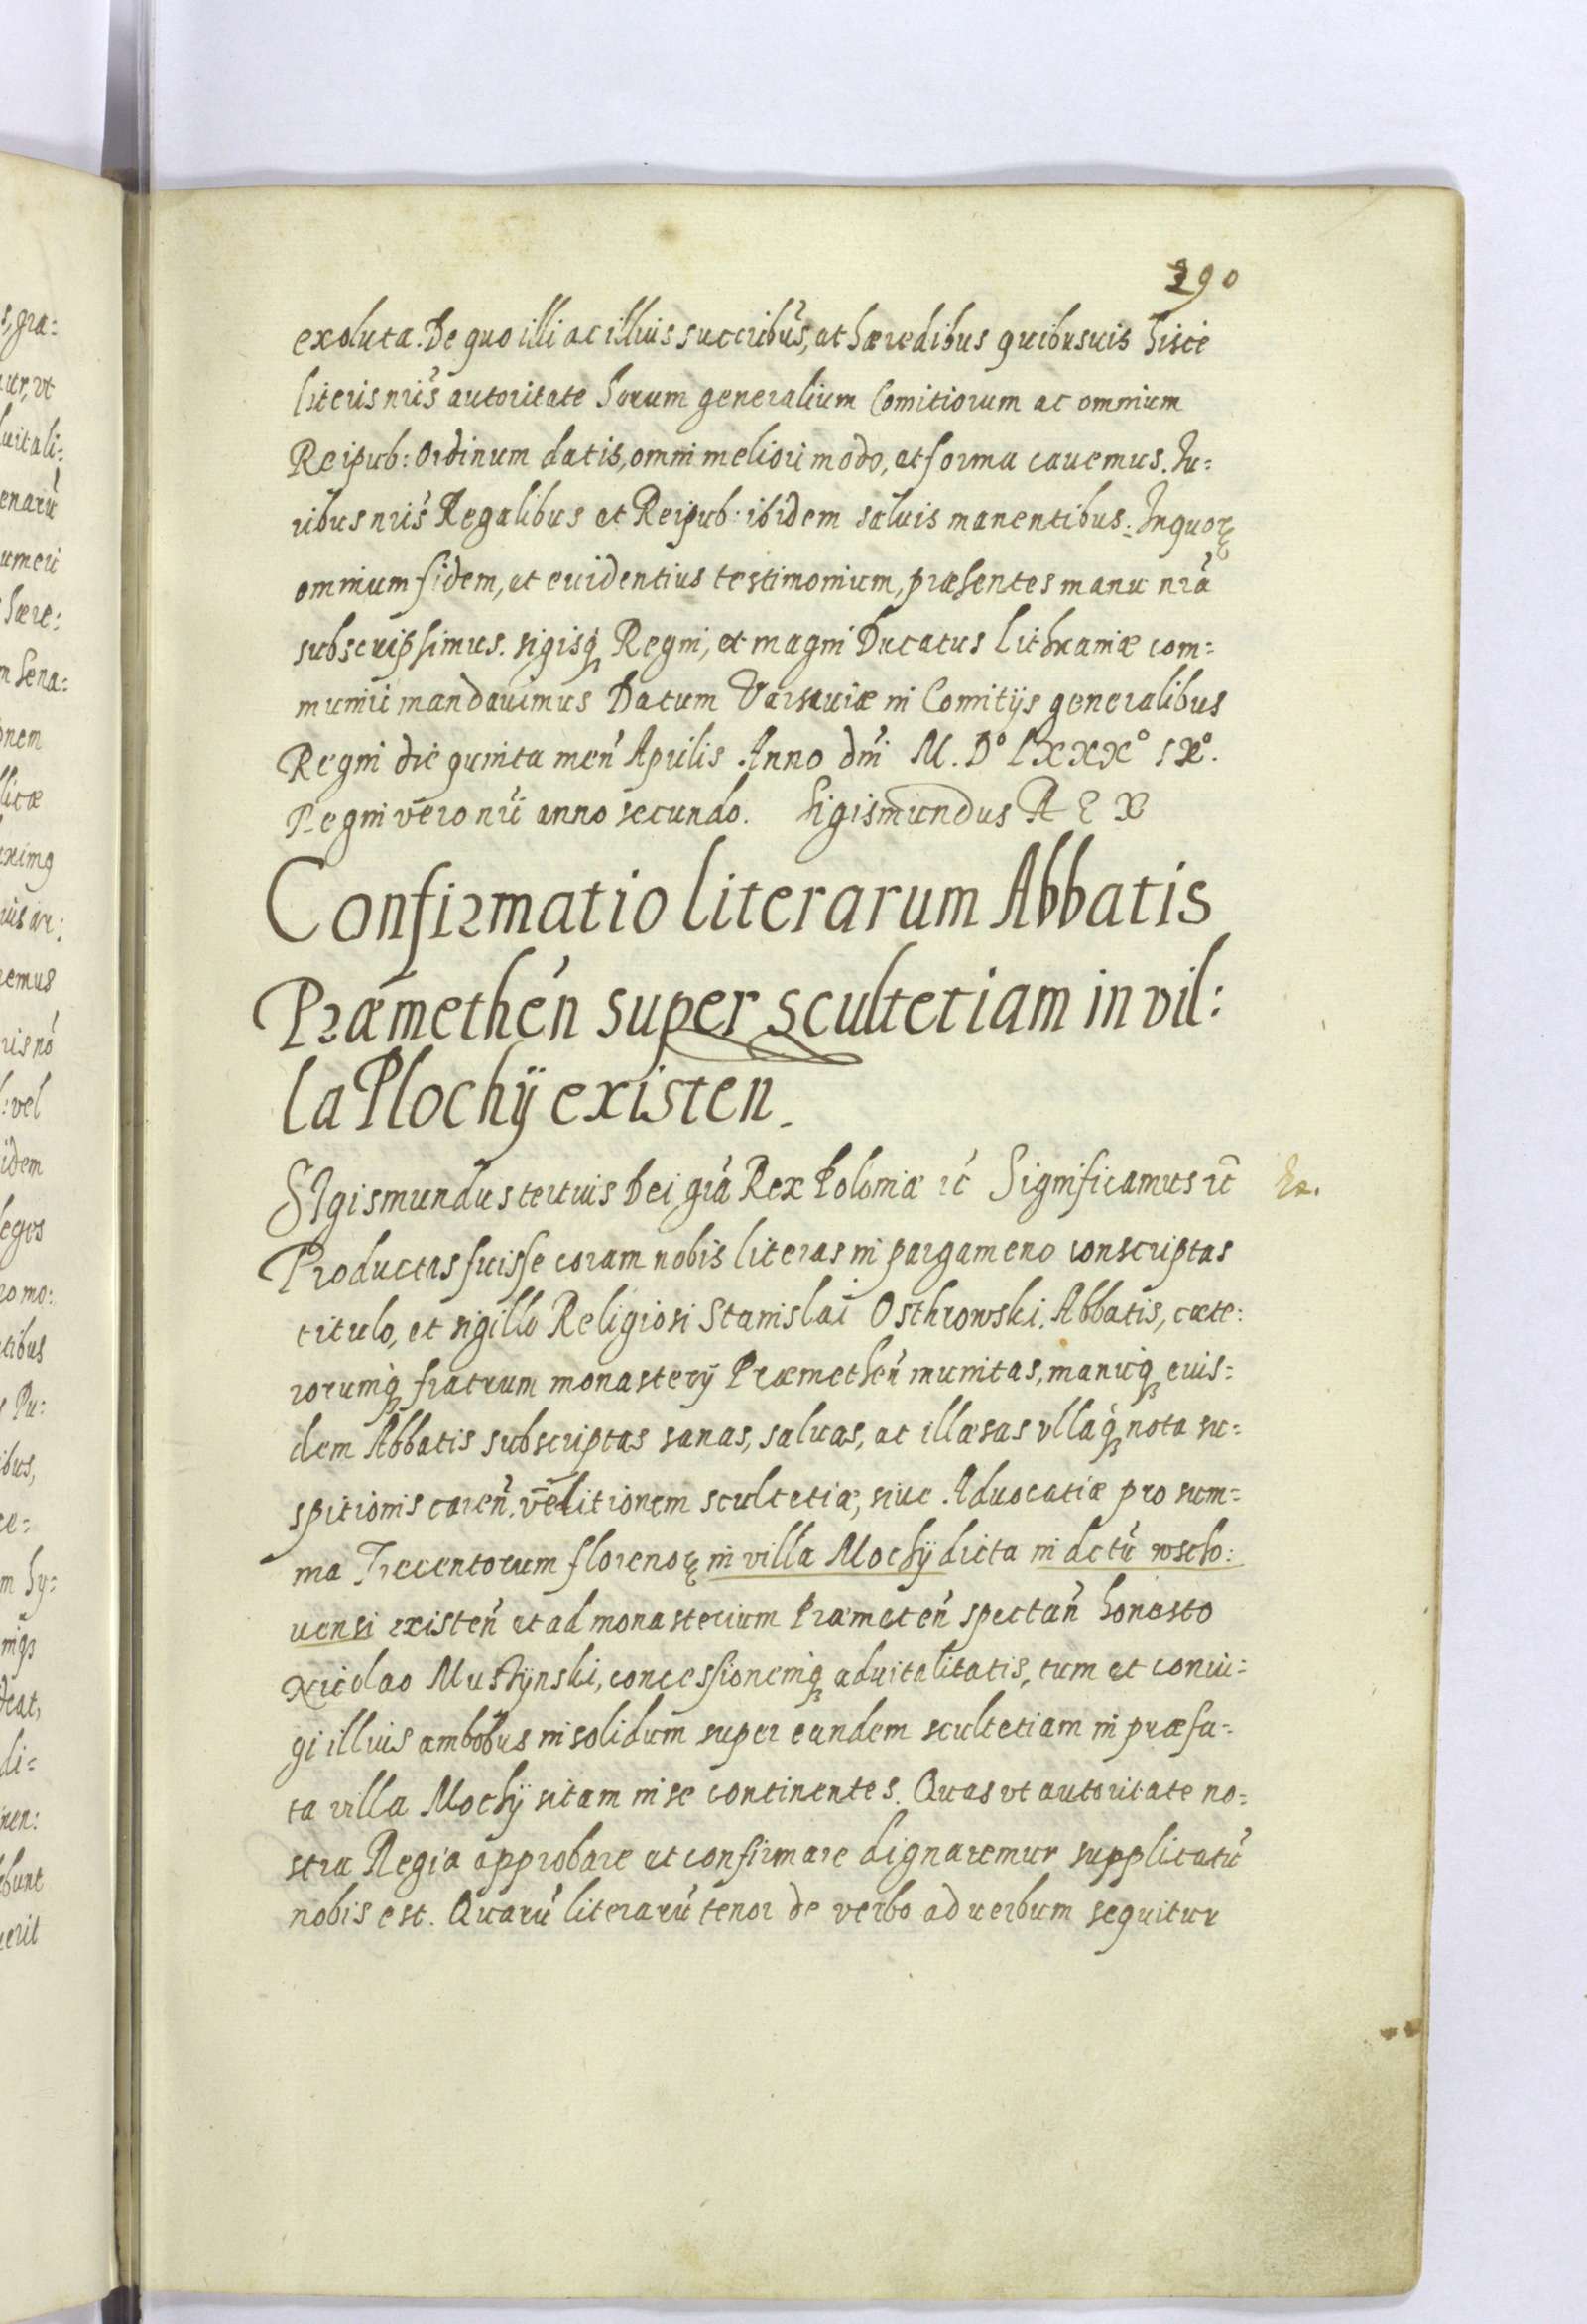 290
exoluta. De quo illi ac illius succribūs, at hæredibus quibusuis hisce
literis nrīs autoritate horum generalium Comitiorum ac omnium
Reipub: Ordinum datis, omni meliori modo, et forma cauemus. Iu=
ribus nrīs Regalibus et Reipub: ibidem saluis manentibus. In quoꝝ
omnium fidem, et euidentius testimonium, præsentes manu nrā
subscripsimus. sigisq̨ Regni, et magni Ducatus Lithuaniæ com=
muniri mandauimus Datum Varsauiæ in Comitijs generalibus
Regni die quinta men̄ Aprilis Anno dni M. D° LXXX° IX°.
Regni vero nrī anno secundo. Sigismundus REX
Confirmatio literarum Abbatis
Præmethen̄ super scultetiam in vil:
la Plochÿ existen
SIgismundus tertius Dei grā Rex Poloniæ rc̄ Significamus rc̄
Productas fuisse coram nobis literas in pargameno conscriptas
titulo, et sigillo Religiosi Stanislai Osthrowski. Abbatis, cæte:
rorumq̨ fratrum monasterÿ Præmethen̄ munitas, manuq̨ eius=
dem Abbatis subscriptas sanas, saluas, ac illæsas vllaq̨ nota su=
spitionis caren̄. vēditionem scultetiæ, siue Aduocatiæ pro sum=
ma Trecentorum florenoꝝ in villa Mochÿ dicta in dctū wscho:
uensi existen̄ et ad monasterium Præmeten̄ spectan̄ honesto
Nicolao Mustÿnski, concessionemq̨ aduitalitatis, tum et coniu=
gi illius ambobus in solidum super eandem scultetiam in præfa=
ta villa Mochÿ sitam in se continentes. Quas vt autoritate no=
stra Regia approbare et confirmare dignaremur supplicatū
nobis est. Quarū literarū tenor de verbo ad uerbum sequitur